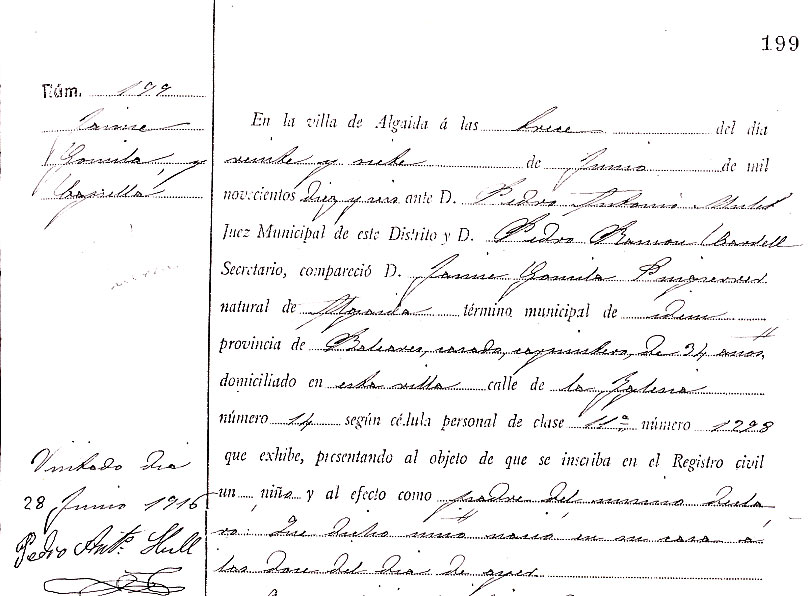 199
Núm. 199
Jaime
Gomila y
En la villa de Algaida á las trece del día
veinte y siete de Junio de mil
novecientos diez y seis ante D. Pedro Antonio Mulet
Juez Municipal de este Distrito y D. Pedro Ramon Cardell
Secretario, compareció D. Jaime Gomila Puigserver
natural de Algaida término municipal de idem
provincia de Baleares, casado, carpintero, de 34 años,
domiciliado en esta villa calle de la Iglesia
número 14 según cédula personal de clase 11ª número 1298
que exhibe, presentando al objeto de que se inscriba en el Registro civil
un niño y al efecto como padre del mismo decla
ró: Que dicho niño nació en su casa á
las doce del dia de ayer
Visitado dia
28 Junio 1916
Pedro Antº